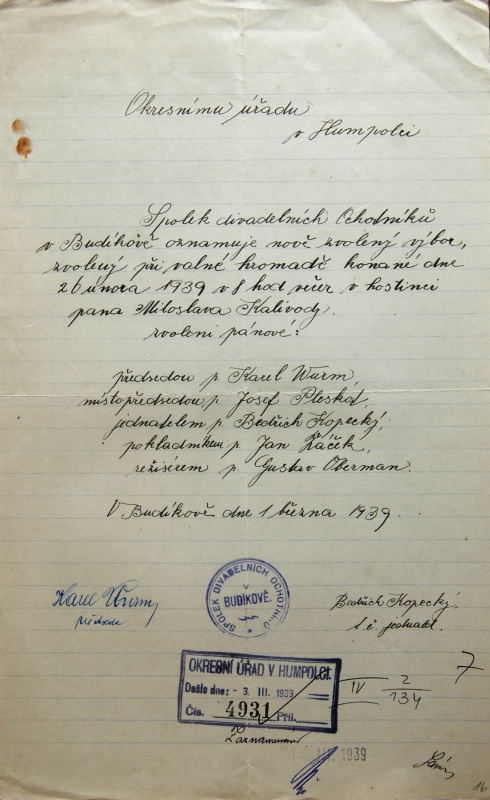 Okresnímu úřadu
v Humpolci
Spolek divadelních Ochodníků
v Budíkově oznamuje nově zvolený výbor,
zvolený při valné hromadě konané dne
26 února 1939 v 8 hod večer v hostinci
pana Miloslava Kalivody.
zvoleni pánové:
předsedou p. Karel Wurm,
místopředsedou p. Josef Pleskot,
jednatelem, p. Bedřich Kopecký,
pokladníkem p. Jan Žáček,
režisérem p. Gustav Oberman.
V Budíkově dne 1 března 1939.
Karel Wurm
předseda
SPOLEK DIVADELNÍCH OCHOTNÍKŮ
V
BUDÍKOVĚ.
Bedřich Kopecký.
t. č. jednatel.
OKRESNÍ ÚŘAD V HUMPOLCI.
Došlo dne: - 3. III. 1939
Čís. 4931 Příl.
IV 2
134
7
Zaznamenáno
III. 1939
16